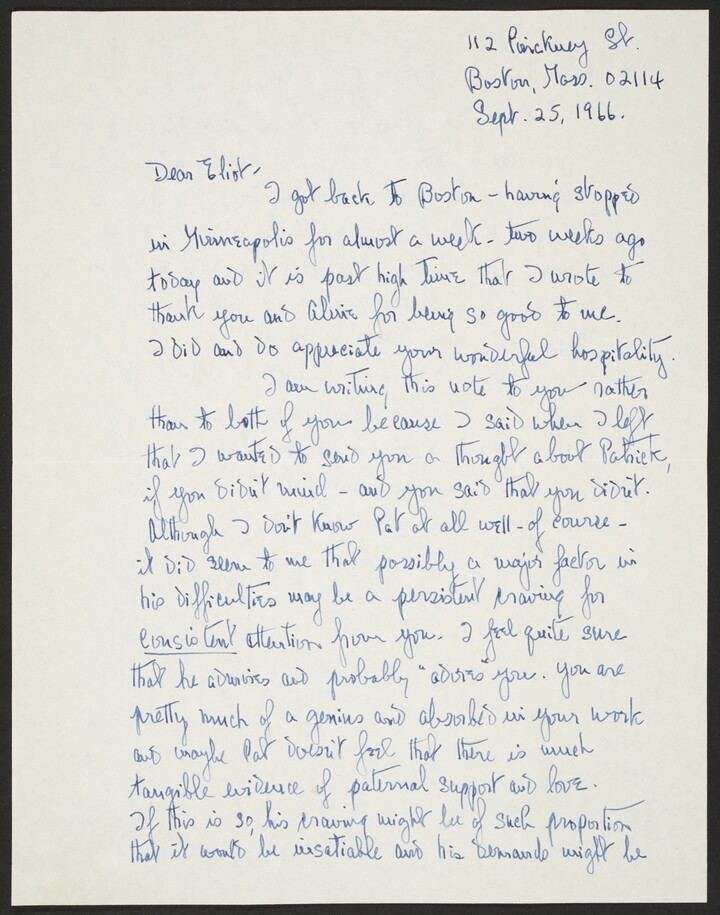 112 Pinckney St.
Boston, Mass. 02114
Sept. 25, 1966.
Dear Eliot,
I got back to Boston – having stopped
in Minneapolis for almost a week – two weeks ago
today and it is past high time that I wrote to
thank you and Aline for being so good to me.
I did and do appreciate your wonderful hospitality.
I am writing this note to you rather
than to both of you because I said when I left
that I wanted to send you a thought about Patrick,
if you didn't mind – and you said that you didn't.
Although I don't know Pat at all well – of course –
it did seem to me that possibly a major factor in
his difficulties may be a persistent craving for
consistent attention from you. I feel quite sure
that he admires and probably "adores" you. You are
pretty much of a genius and absorbed in your work
and maybe Pat doesn't feel that there is much
tangible evidence of paternal support and love.
If this is so, his craving might be of such proportion
that it would be insatiable and his demands might be